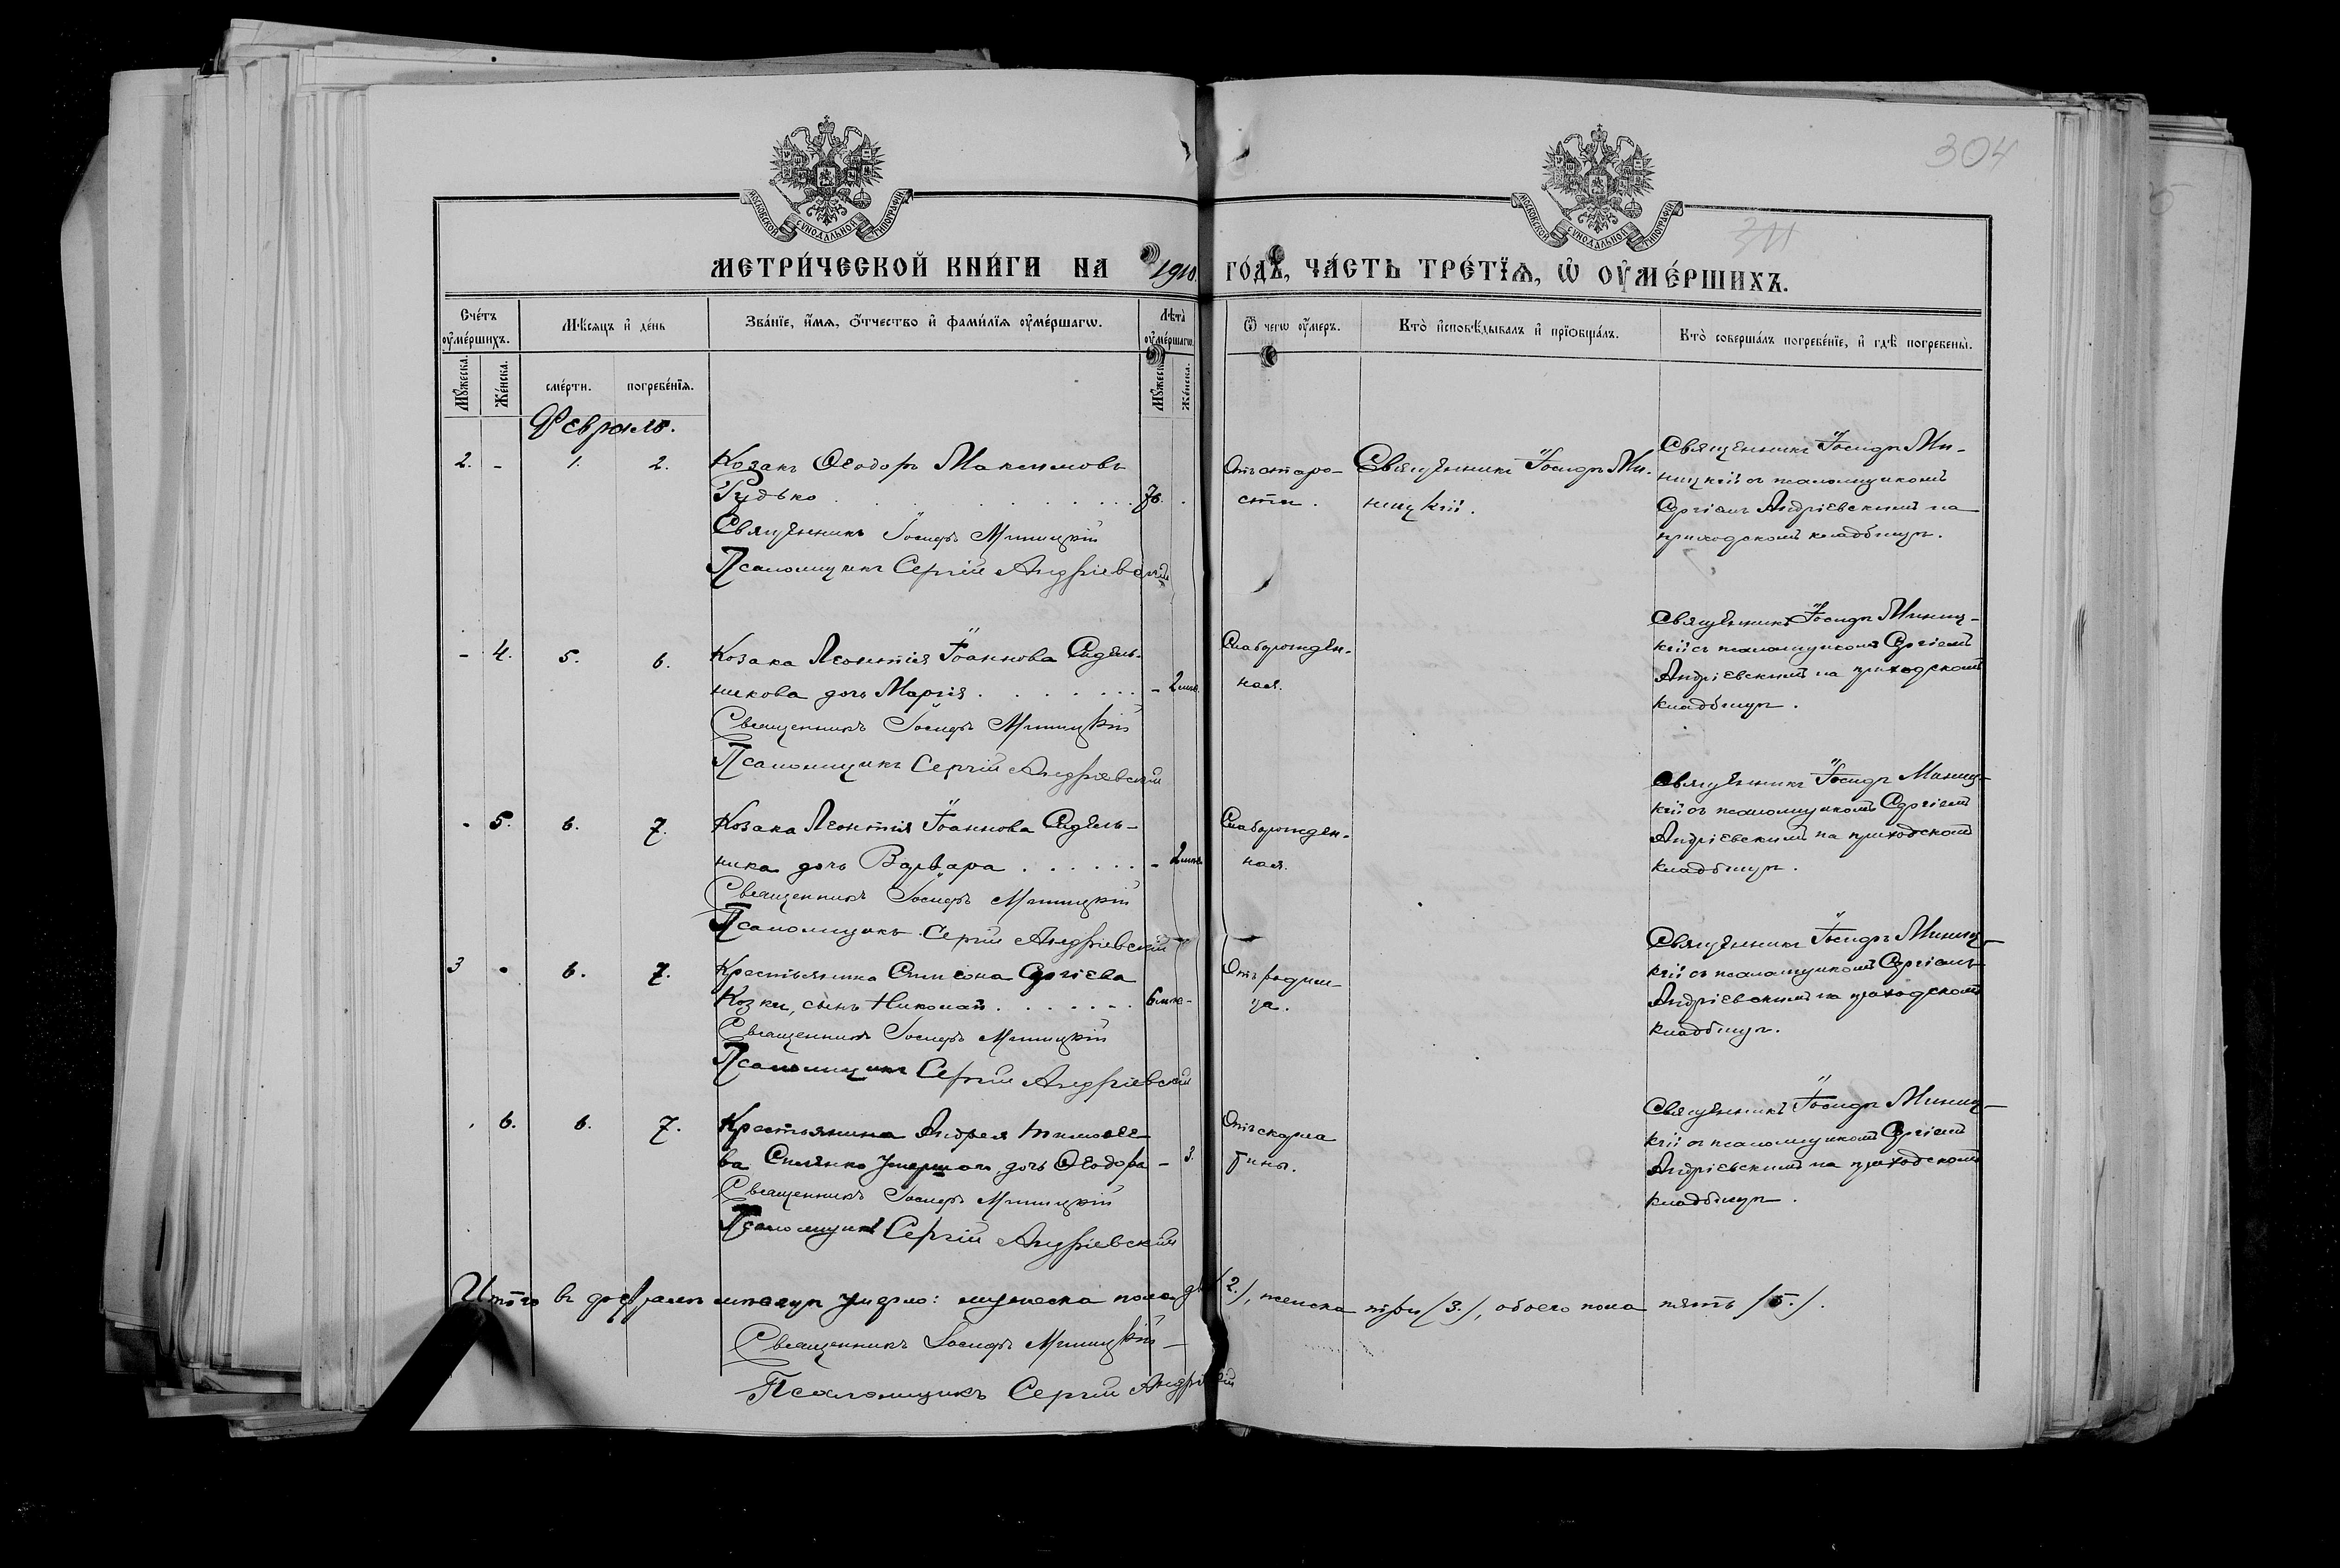 304
311
МОСКОВСКОЙ СѴНОДАЛЬНОЙ ТИПОГРАФІИ
МОСКОВСКОЙ СѴНОДАЛЬНОЙ ТИПОГРАФІИ
МЕТРИ́ЧЕСКОЙ КНИ́ГИ НА 1910 ГО́ДЪ, ЧА́СТЬ ТРЕ́ТЇѦ, Ѽ ОУ҆МЕ́РШИХЪ.
Сче́тъ оу҆ме́ршихъ.
Мѣ́сѧцъ и҆ де́нь
Зва́нїе, и҆́мѧ, ѻ҆́тчество и҆ фами́лїѧ оу҆ме́ршагѡ.
Лѣ̀та оу҆ме́ршагѡ.
Ѿ чегѡ̀ оу҆́меръ.
Кто̀ и҆сповѣ́дывалъ и҆ прїѡбща́лъ.
Кто̀ соверша́лъ погребе́нїе, и҆ гдѣ̀ погребены̀.
Мꙋ́жеска.
Же́нска.
сме́рти.
погребе́нїѧ.
Мꙋ́жеска.
Же́нска.
Февраль.
2. - 1. 2. Козакъ Ѳеодоръ Максимовъ
Рудько . . . . . . . 78.
Священникъ Іосифъ Миницкій
Псаломщикъ Сергій Андріевскій
Отъ старо-
сти.
Священникъ Іосифъ Ми-
ницкій.
Священникъ Іосифъ Ми-
ницкій съ псаломщикомъ
Сергіемъ Андріевскимъ на
приходскомъ кладбищѣ.
- 4. 5. 6. Козака Леонтія Іоаннова Сидѣль-
никова дочь Марія . . . . . . . - 2 мин.
Священникъ Іосифъ Миницкій
Псаломщикъ Сергій Андріевскій
Слаборожден-
ная.
Священникъ Іосифъ Миниц-
кій съ псаломщикомъ Сергіемъ
Андріевскимъ на приходскомъ
кладбищѣ.
- 5. 6. 7. Козака Леонтія Іоаннова Сидѣль-
ника дочь Варвара . . . . . . - 2 мин.
Священникъ Іосифъ Миницкій
Псаломщикъ Сергій Андріевскій
Слаборожден-
ная.
Священникъ Іосифъ Миниц-
кій съ псаломщикомъ Сергіемъ
Андріевскимъ на приходскомъ
кладбищѣ.
3 - 6. 7. Крестьянина Симеона Сергіева
Козки, сынъ Николай . . . . . . 6
Священникъ Іосифъ Миницкій
Псаломщикъ Сергій Андріевскій
Отъ родим-
ца.
Священникъ Іосифъ Миниц-
кій съ псаломщикомъ Сергіемъ
Андріевскимъ на приходскомъ
кладбищѣ.
- 6. 6. 7. Крестьянина Андрея Тимоѳее-
ва дочь Ѳеодора - 3.
Священникъ Іосифъ Миницкій
Псаломщикъ Сергій Андріевскій
Отъ скарла
тины.
Священникъ Іосифъ Миниц-
кій съ псаломщикомъ Сергіемъ
Андріевскимъ на приходскомъ
кладбищѣ.
Итого въ февралѣ мѣсяцѣ умерло: мужеска пола два /2./, женска три /3./, обоего пола пять /5./.
Священникъ Іосифъ Миницкій
Псаломщикъ Сергій Андріевскій